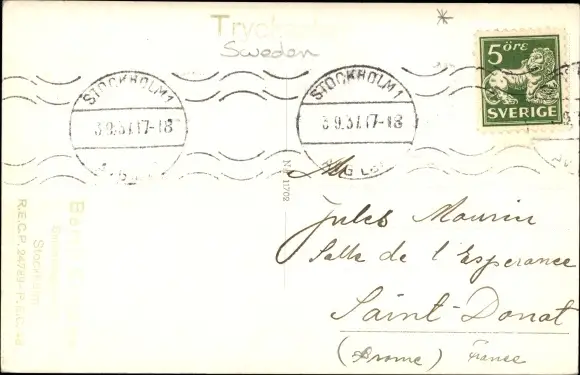 Tryck
Sweden
*
5 ÖRE
SVERIGE
STOCKHOLM 1
3.9.37.17-18
STOCKHOLM 1
3.9.37.17-18
Mr
Jules Mourin
Salle de l'Esperance
Saint-Donat
(Drome) France
Stockholm
R.E.C.P. 24789-P.S.C.-8